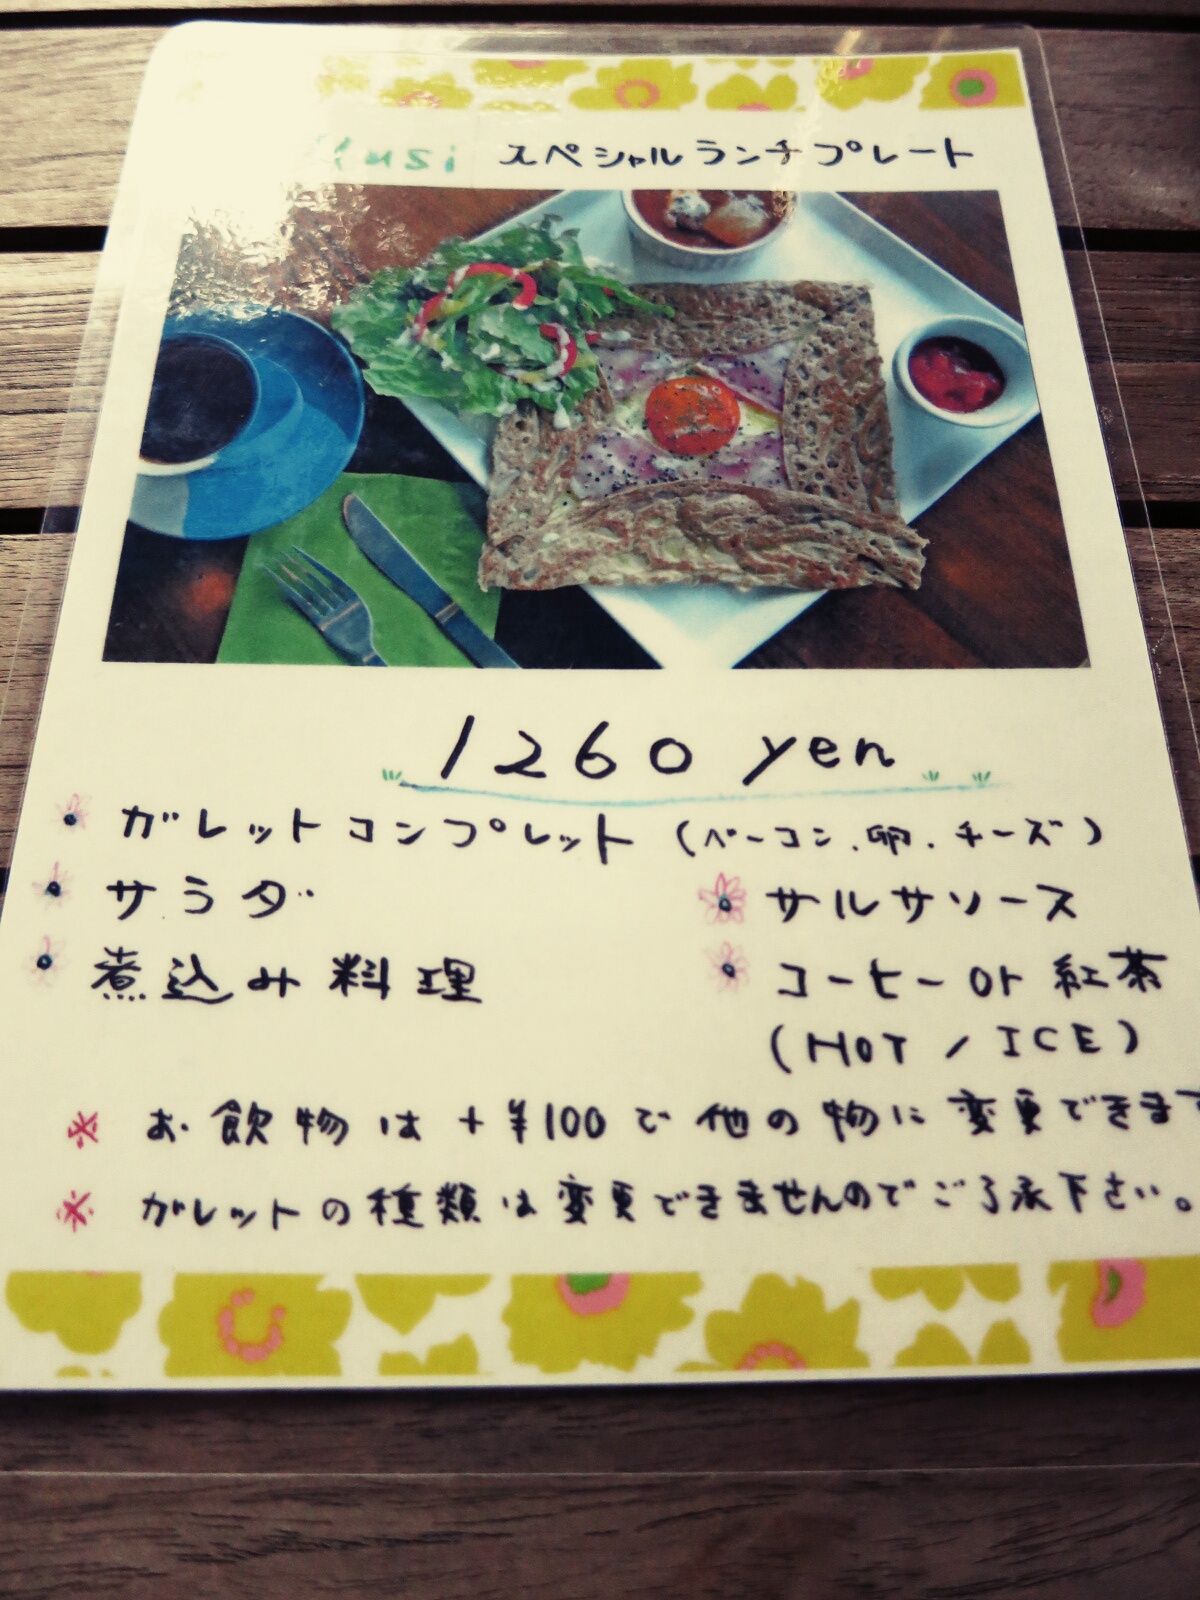 スペシャルランチプレート
1260 yen
ガレットコンプレット (ベーコン、卵、チーズ)
サラダ
サルサソース
煮込み料理
コーヒー or 紅茶
(HOT / ICE)
※ お飲物は +¥100 で他の物に変更できます
※ ガレットの種類は変更できませんのでご了承下さい。